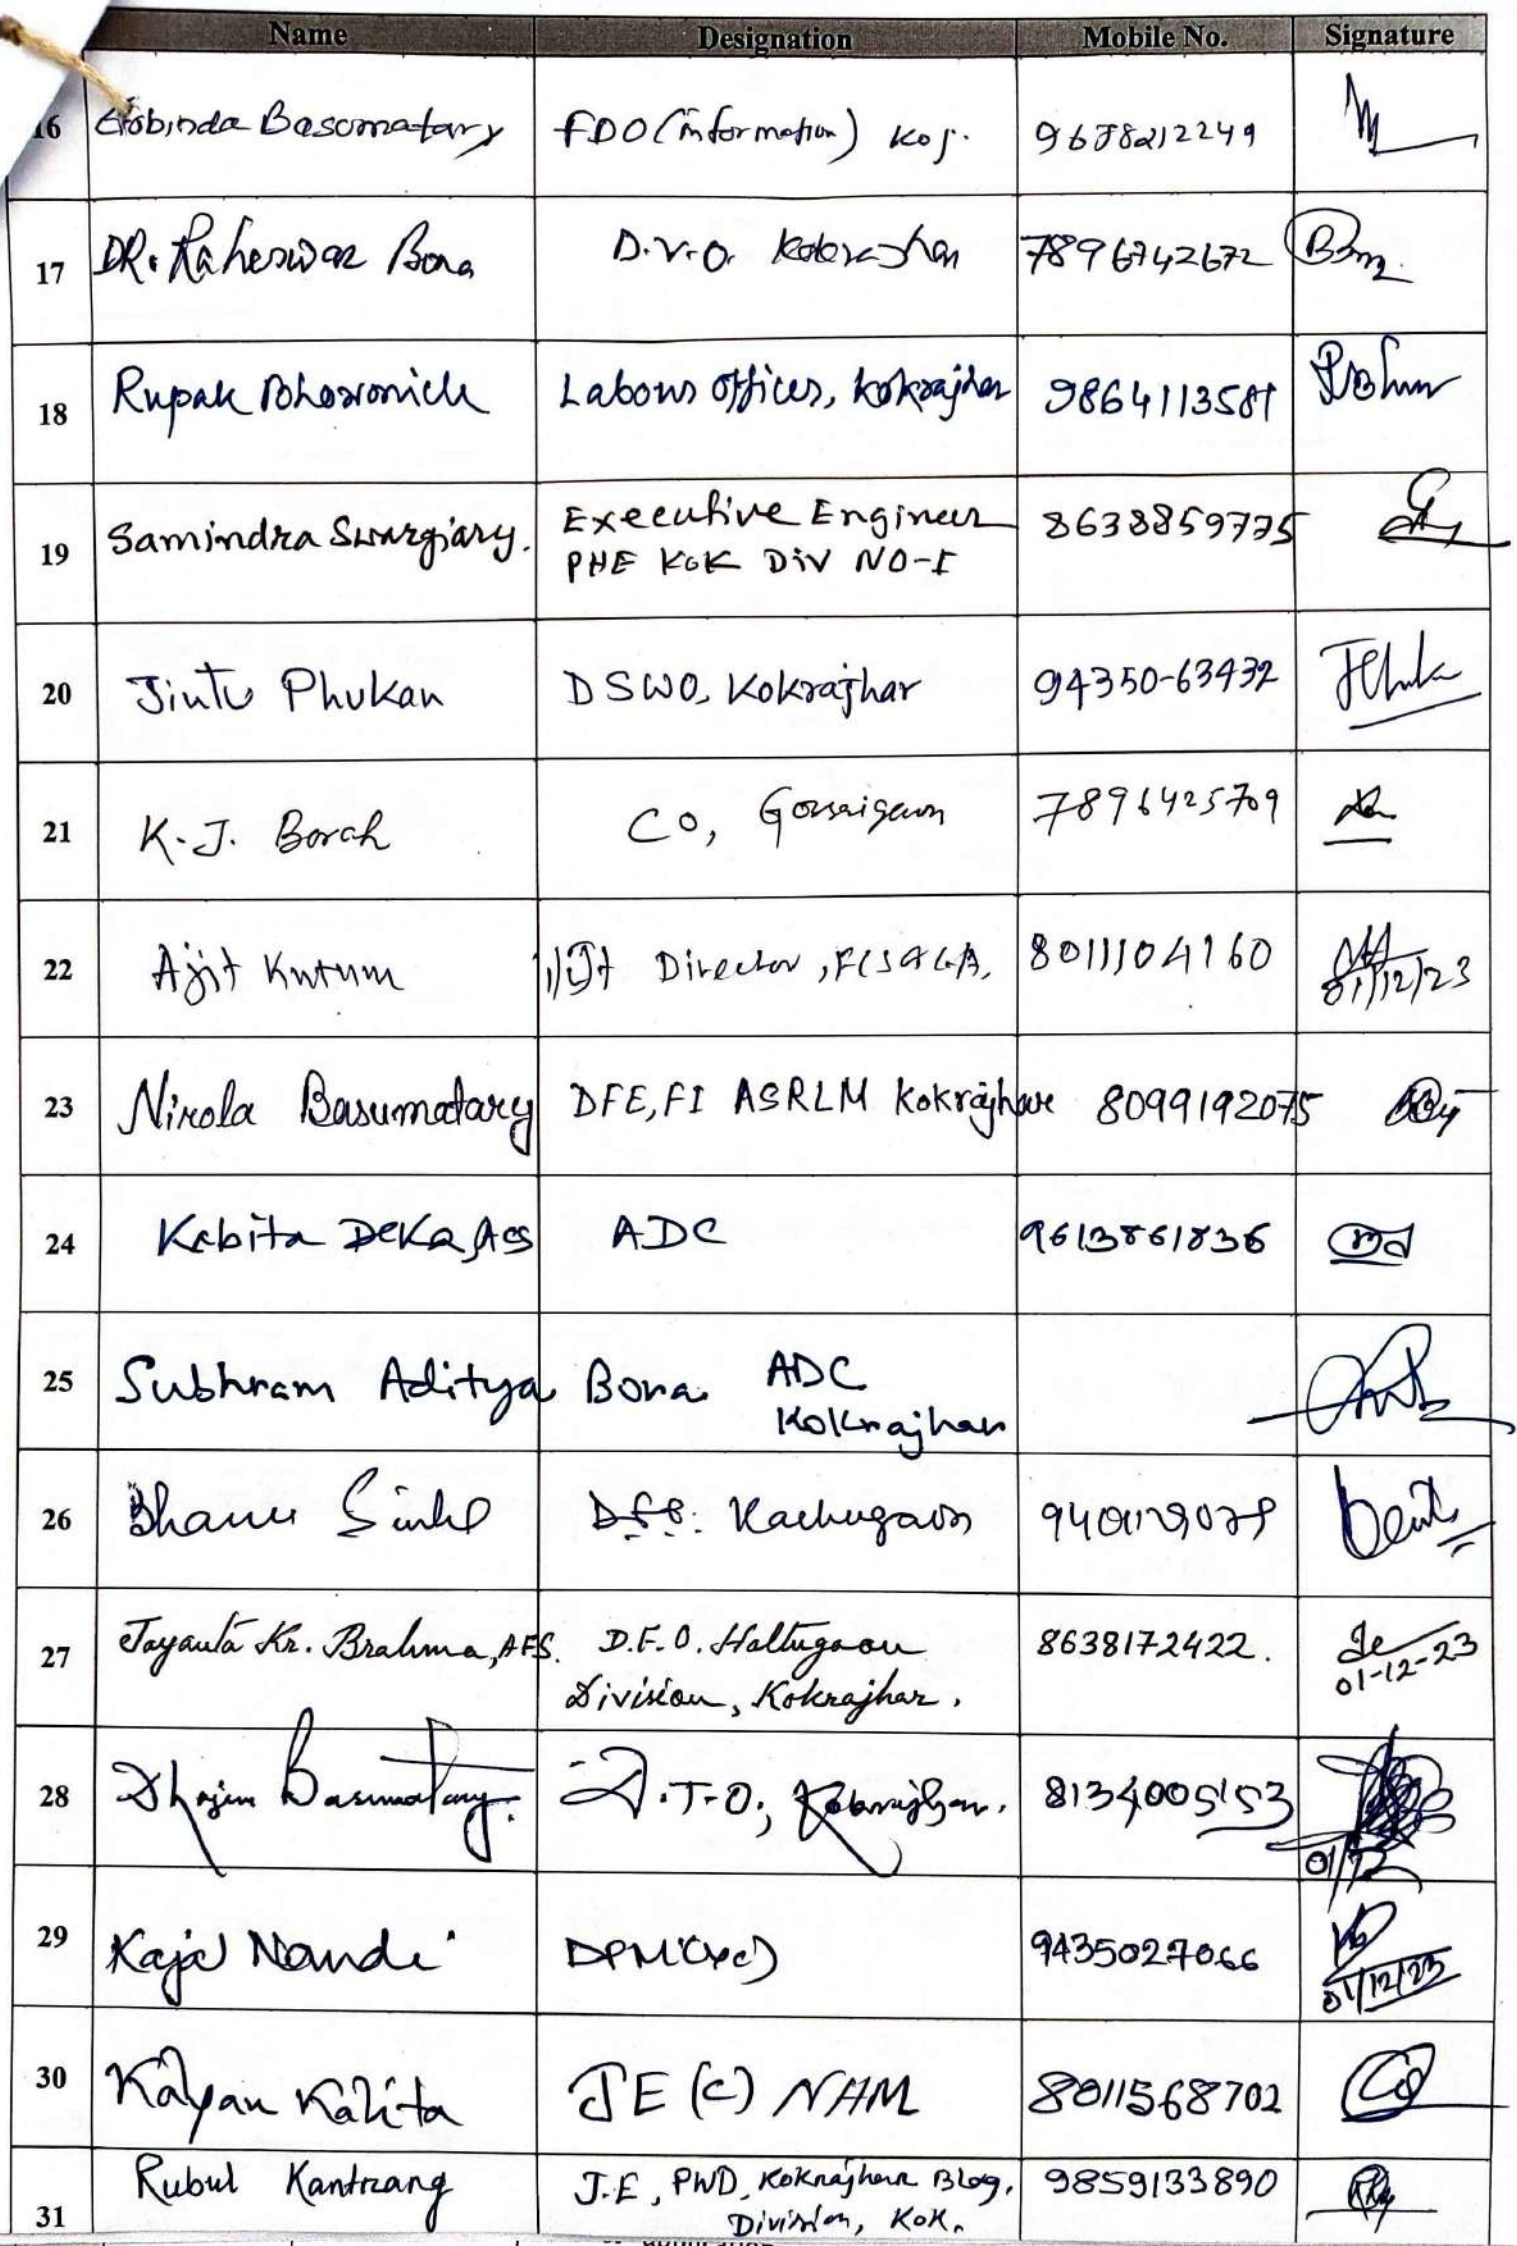 Name Designation Mobile No. Signature
16 Gobinda Basumatary FDO (information) Koj. 9678212249
17 DR. Raheswar Bora D.V.O. Kokrajhar 7896742672
18 Rupak Bhowmick Labour Officer, Kokrajhar 9864113581
19 Samindra Swargiary. Executive Engineer 8638859775
PHE KOK DIV NO-I
20 Jintu Phukan DSWO, Kokrajhar 94350-63432
21 K.J. Borah CO, Gossaigaon 7896425709
22 Ajit Kutum Director, 8011104160
01/12/23
23 Nirola Basumatary DFE, FI ASRLM Kokrajhar 8099192075
24 Kabita Deka, ACS ADC 9613861836
25 Subhram Aditya Bora ADC
Kokrajhar
26 Bhanu Sinha Kachugaon
27 Jayanta Kr. Brahma, AFS. D.F.O. Haltugaon 8638172422.
Division, Kokrajhar. 01-12-23
28 Basumatary. D.T.O., Kokrajhar. 8134005153
01/12
29 Kajal Nandi 9435027066
01/12/23
30 Kalyan Kalita JE (C) NHM 8011568702
31 Rubul Kantrang J.E, PWD, Kokrajhar Bldg. 9859133890
Division, Kok.